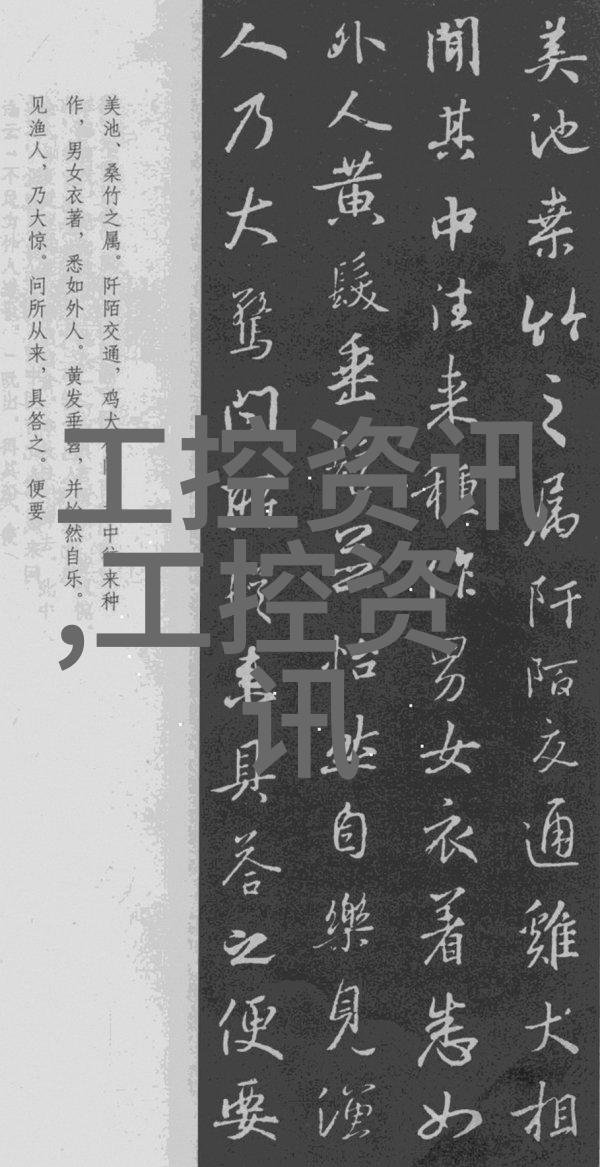 美池桒竹之属阡陌交通雞犬相
聞其中往来種作男女衣着悉如
外人黃髮垂髫並怡然自樂見漁
人乃大驚問所從来具答之便要
美池、桑竹之属。阡陌交通，鸡犬 中往来种
作，男女衣著，悉如外人。黄发垂髫，并怡然自乐。
见渔人，乃大惊。问所从来，具答之。便要
工控资讯
,工控资
讯